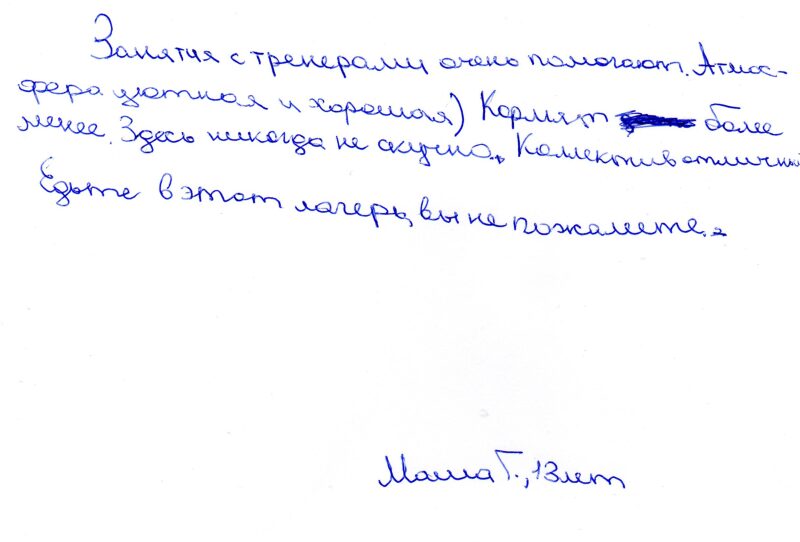 Занятия с тренерами очень помогают. Атмос-
фера уютная и хорошая) Кормят более
менее. Здесь никогда не скучно.. Коллектив отличный
Едьте в этот лагерь, вы не пожалеете..
Маша Г., 13 лет